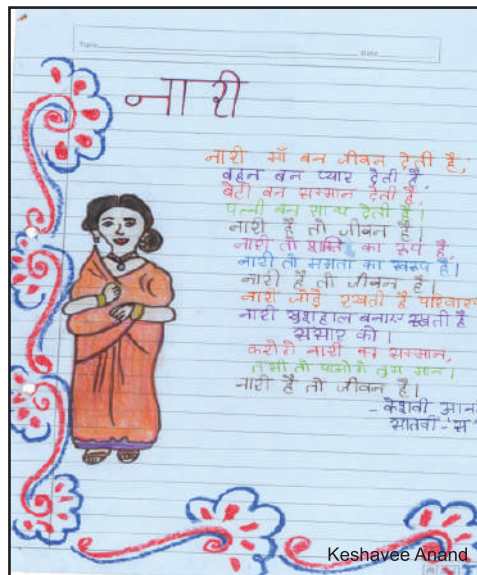 Name
Date
नारी
नारी माँ बन जीवन देती है,
बहन बन प्यार देती है
बेटी बन सम्मान देती है,
पत्नी बन साथ देती है।
नारी है तो जीवन है।
नारी तो शक्ति का रूप है,
नारी तो ममता का स्वरूप है।
नारी है तो जीवन है।
नारी जोड़े रखती है परिवार
नारी खुशहाल बनाए रखती है
संसार को।
करोगे नारी का सम्मान,
तभी तो पाओगे तुम मान।
नारी है तो जीवन है।
- केशवी आन
सातवीं-'स'
Keshavee Anand